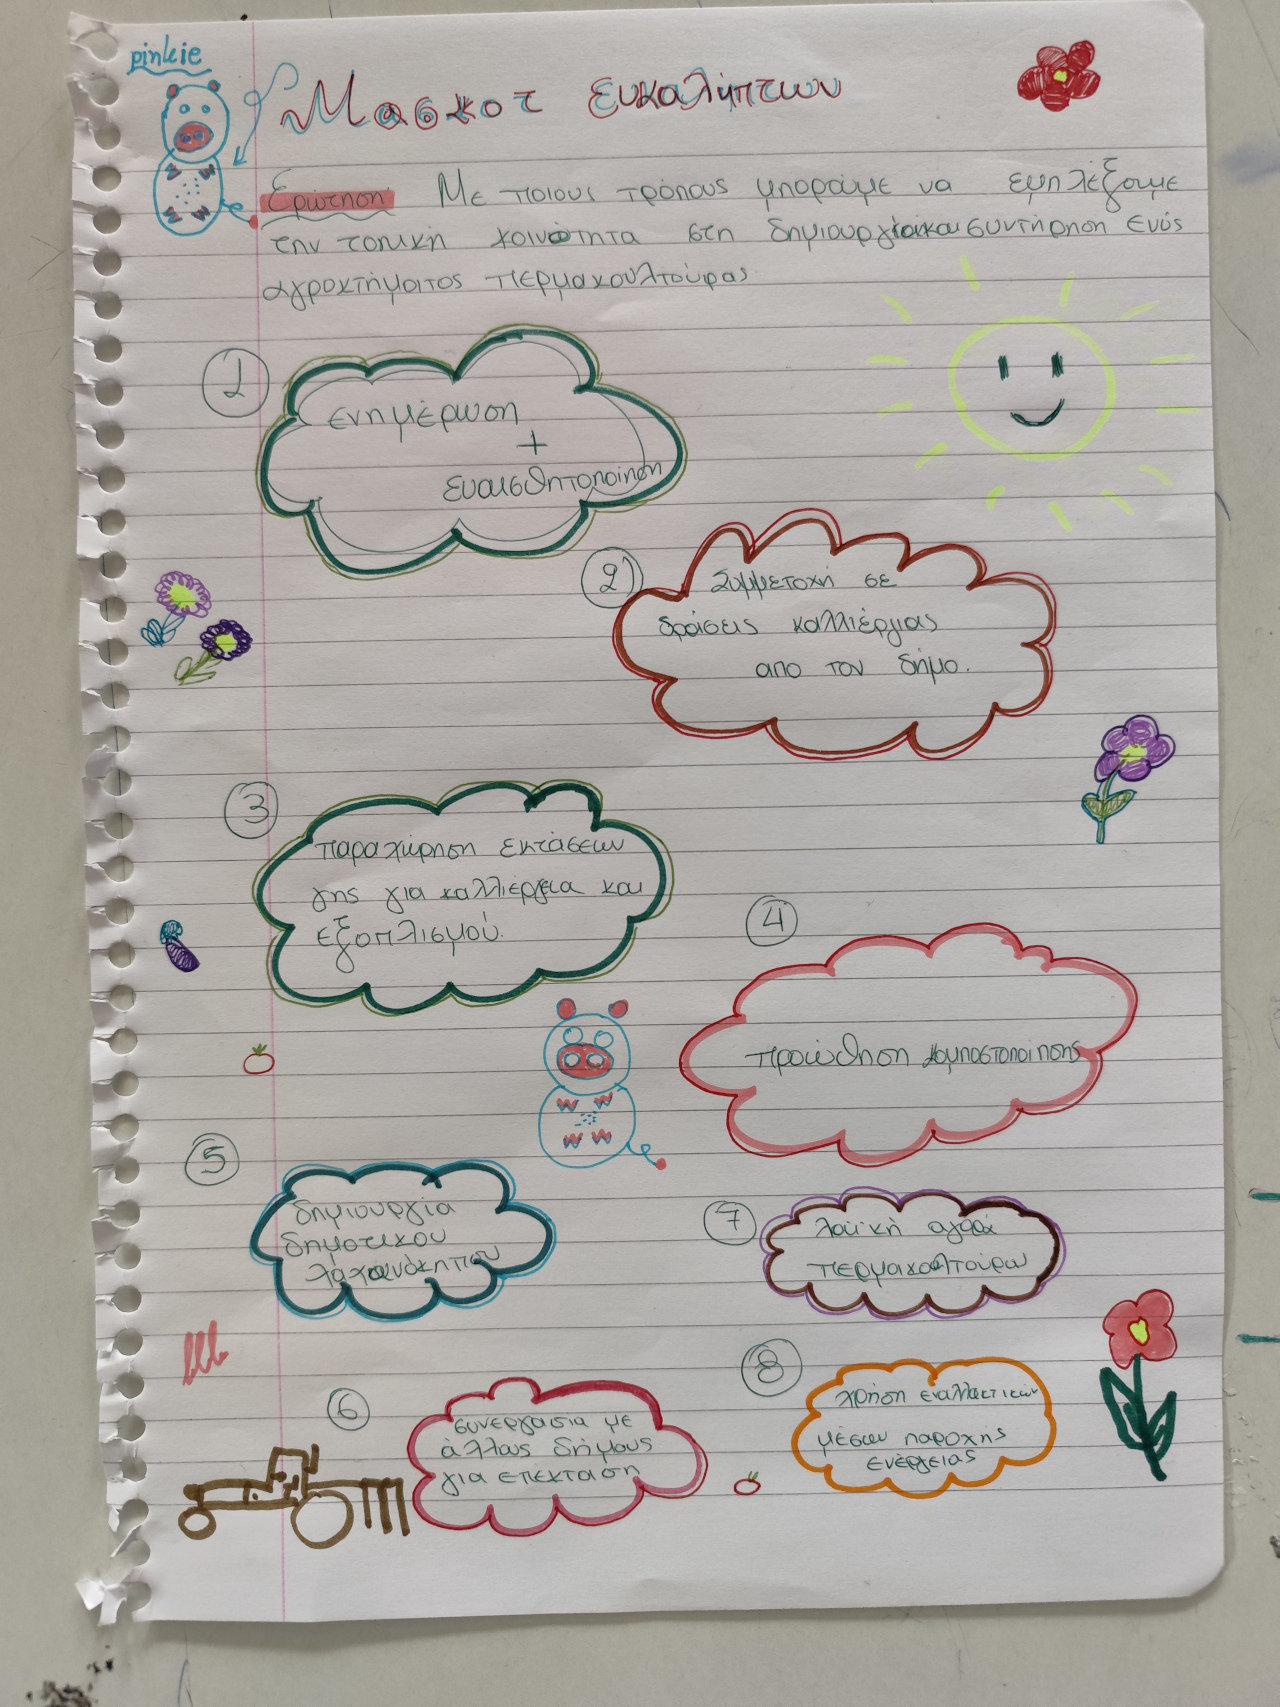 pinkie
Μασκοτ ευκαλύπτων
Ερώτηση: Με ποιους τρόπους μπορούμε να εμπλέξουμε
την τοπική κοινότητα στη δημιουργία και συντήρηση ενός
αγροκτήματος περμακουλτούρας
1
ενημέρωση
+
ευαισθητοποίηση
2
Συμμετοχή σε
δράσεις καλλιέργιας
απο τον δήμο.
3
παραχώρηση εκτάσεων
γης για καλλιέργεια και
εξοπλισμού.
4
προώθηση κομποστοποίησης
5
δημιουργία
δημοτικου
λάχανόκηπου
7
λαϊκή αγορά
περμακολτούρα
8
χρήση εναλλακτικών
μέσων παροχής
ενέργειας
6
συνεργασια με
άλλους δήμους
για επέκταση